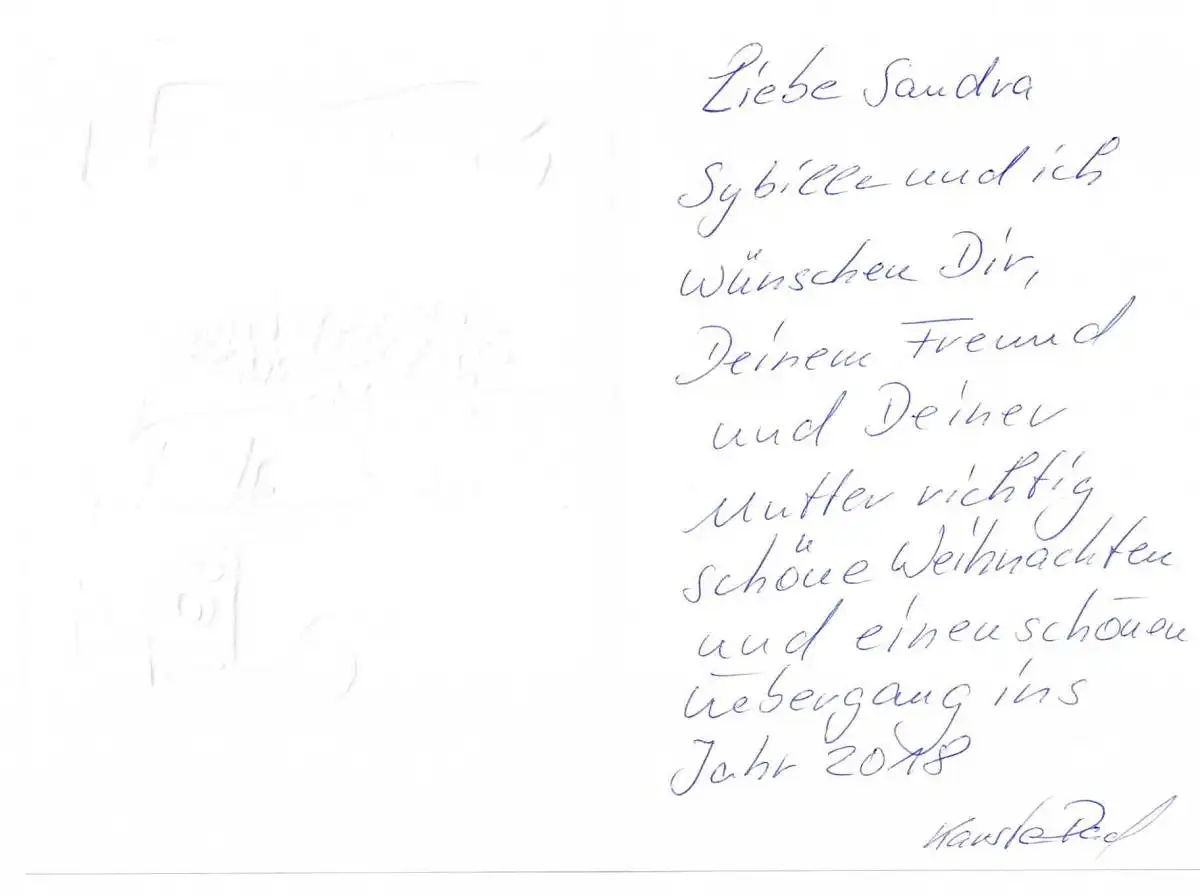 Liebe Sandra
Sybille und ich
wünschen Dir,
Deinem Freund
und Deiner
Mutter richtig
schöne Weihnachten
und einen schönen
Übergang ins
Jahr 2018